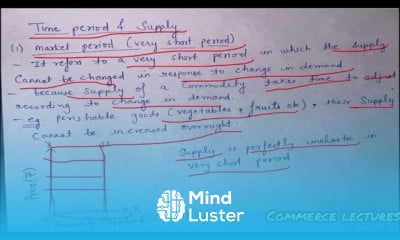 Time period & Supply
(1) market period (very short period)
- It refer to a very short period in which the supply
Cannot be changed in response to change in demand.
- because supply of a Commodity takes time to adjust
according to change in demand.
- eg. perishable goods (vegetables, fruits etc), their Supply
Cannot be increased overnight.
Supply is perfectly inelastic in
very short period
Price(₹)
S
Quantity Supplied
Mind
Luster
COMMERCE lectures